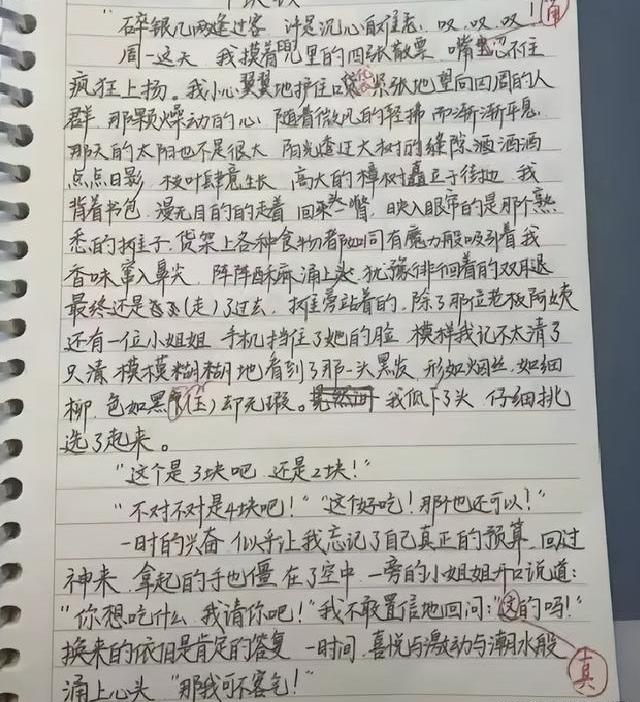 "碎银几两逢过客 汁员沉心自难志, 叹、叹、叹! 庸
周一这天 我摸着兜里的四张散票 嘴忍不住
疯狂上扬。我小心翼翼地护住口袋 紧张地望向四周的人
群, 那颗燥动的心, 随着微风的轻拂 而渐渐平息,
那天的太阳也不是很大 阳光透过大树的缝隙, 洒洒洒
点点日影, 枝叶肆意生长 高大的樟树矗立于街边 我
背着书包, 漫无目的的走着 回头一瞥, 映入眼帘的是那个熟
悉的摊子, 货架上各种食物都如同有魔力般吸引着我
香味窜入鼻尖, 阵阵酥麻涌上头, 犹豫徘徊着的双腿
最终还是(走)了过去, 摊旁站着的, 除了那位老板阿姨
还有一位小姐姐 手机挡住了她的脸, 模样我记不太清了
只清 模模糊糊地看到了那一头黑发, 形如烟丝, 如细
柳, 色如黑(玉)却无瑕。 我低下了头 仔细挑
选了起来。
"这个是3块吧, 还是2块!"
"不对不对是4块吧!" "这个好吃! 那个也还可以!"
一时的兴奋, 似乎让我忘记了自己真正的预算, 回过
神来, 拿起的手也僵在了空中, 一旁的小姐姐开口说道:
"你想吃什么, 我请你吧!" 我不敢置信地回问: "这的吗!"
换来的依旧是肯定的答复 一时间, 喜悦与激动与潮水般 真
涌上心头 "那我可不客气!"